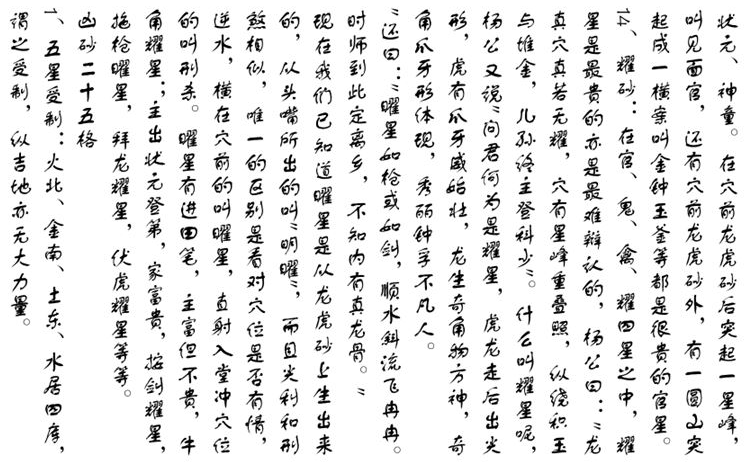 状元、神童。在穴前龙虎砂后突起一星峰，
叫见面官，还有穴前龙虎砂外，有一圆山突
起成一横案叫金钟玉釜等都是很贵的官星。
14、耀砂：在官、鬼、禽、耀四星之中，耀
星是最贵的亦是最难辩认的，杨公曰："龙
真穴真若无耀，穴有星峰重叠照，纵绕积玉
与堆金，儿孙终主登科少"。什么叫耀星呢，
杨公又说"问君何为是耀星，虎龙走后出尖
形，虎有爪牙威始壮，龙生奇角物方神，奇
角爪牙形体现，秀丽钟孚不凡人。
"还曰："曜星如枪或如剑，顺水斜流飞冉冉。
时师到此定离乡，不知内有真龙骨。"
现在我们已知道曜星是从龙虎砂上生出来
的，从头嘴所出的叫"明曜"，而且尖利和刑
煞相似，唯一的区别是看对穴位是否有情，
逆水，横在穴前的叫曜星，直射入堂冲穴位
的叫刑杀。曜星有进田笔，主富但不贵，牛
角耀星；主出状元登第，家富贵，按剑耀星，
拖枪曜星，拜龙耀星，伏虎耀星等等。
凶砂二十五格
1、五星受制：火北、金南、土东、水居四库，
谓之受制，纵吉地亦无大力量。